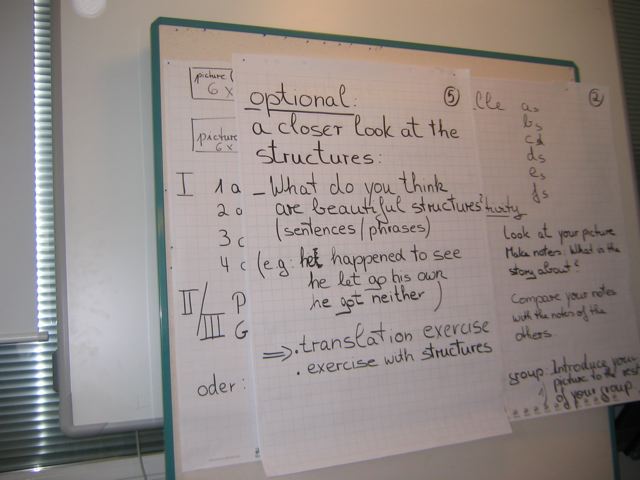 picture
6 x
picture
6x
I 1 a
2
3 c
4 c
II/III P
G
oder:
optional: 5
a closer look at the
structures:
- What do you think
are beautiful structures?
(sentences/phrases)
(e.g: he happened to see
he let go his own
he got neither)
=> . translation exercise
. exercise with structures
2
a,
b,
c,
d,
e,
f,
Look at your picture
Make notes: What is the
story about?
Compare your notes
with the notes of the
others.
group: Introduce your
picture to the rest
of your group